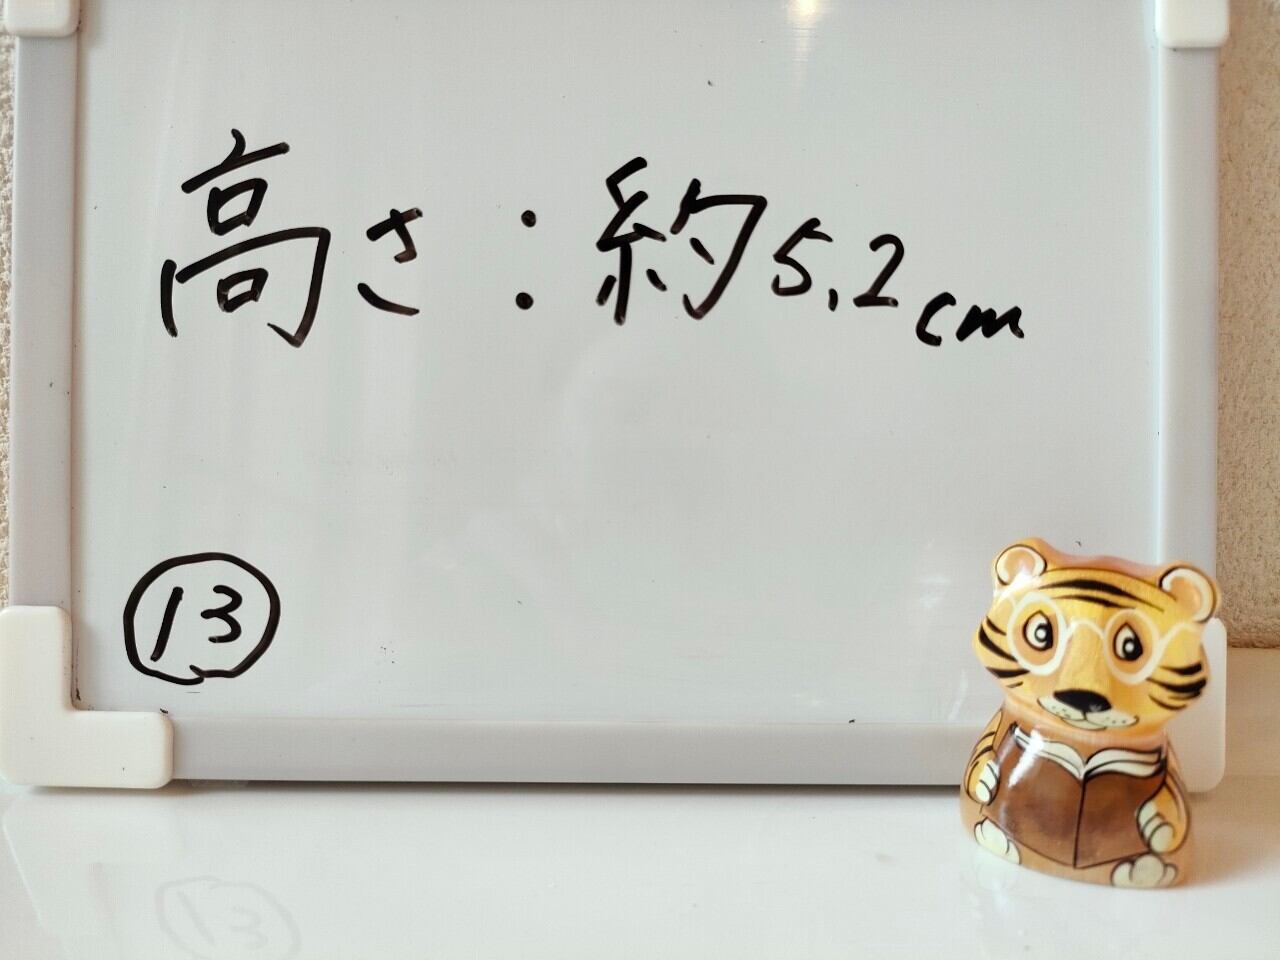 高さ:約5.2cm
⑬